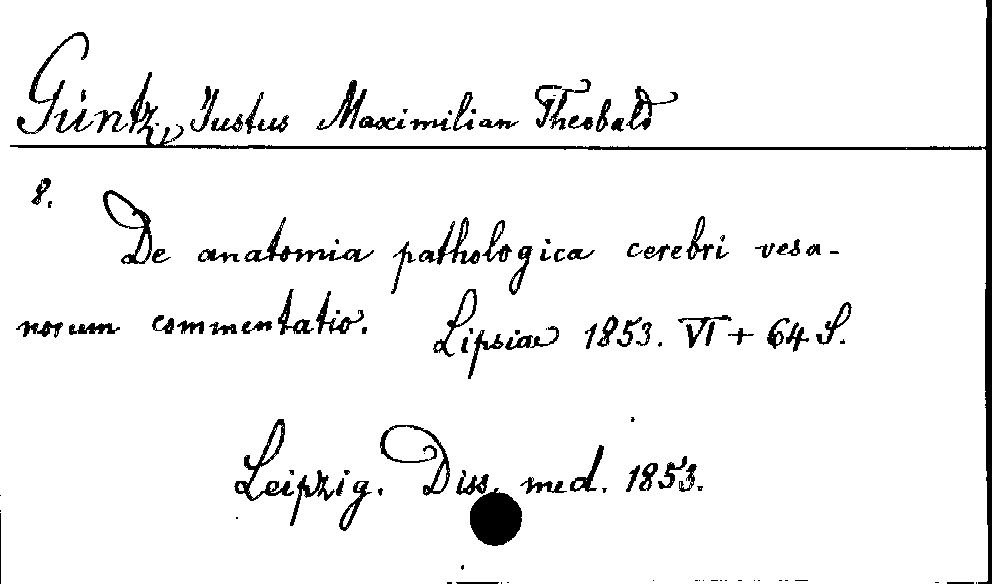 Güntz, Justus Maximilian Theobald
8.
De anatomia pathologica cerebri vesa-
norum commentatio. Lipsiae 1853. VI + 64 S.
Leipzig. Diss. med. 1853.